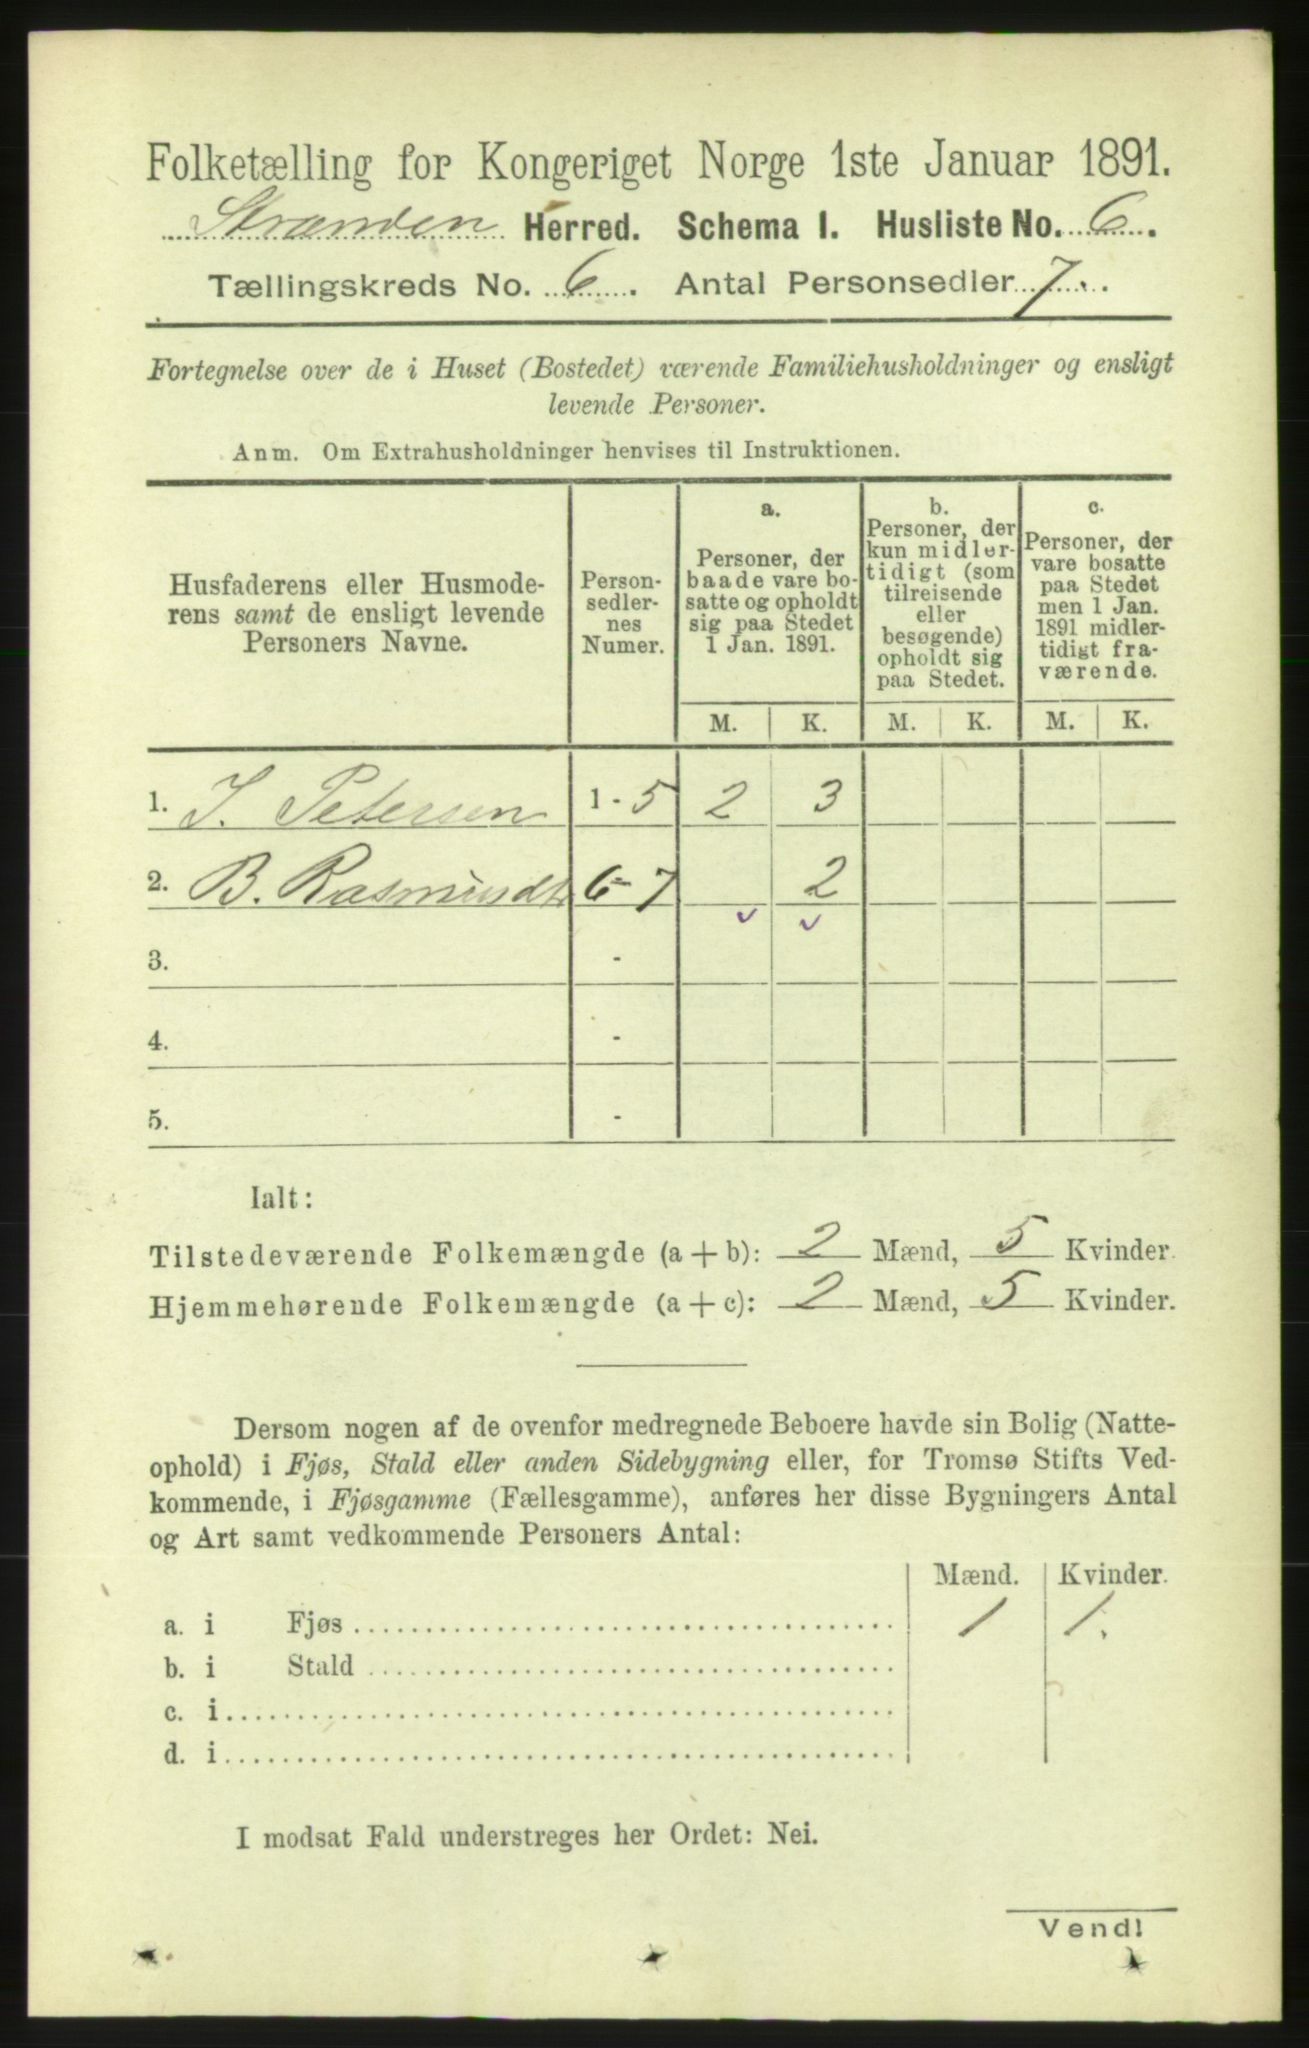 Folketælling for Kongeriget Norge 1ste Januar 1891.
Stranden Herred. Schema I. Husliste No. 6.
Tællingskreds No. 6. Antal Personsedler 7.
Fortegnelse over de i Huset (Bostedet) værende Familiehusholdninger og ensligt
levende Personer.
Anm. Om Extrahusholdninger henvises til Instruktionen.
Husfaderens eller Husmode-
rens samt de ensligt levende
Personers Navne.
Person-
sedler-
nes
Numer.
a.
Personer, der
baade vare bo-
satte og opholdt
sig paa Stedet
1 Jan. 1891.
b.
Personer, der
kun midler-
tidigt (som
tilreisende
eller
besøgende)
opholdt sig
paa Stedet.
c.
Personer, der
vare bosatte
paa Stedet
men 1 Jan.
1891 midler-
tidigt fra-
værende.
M. K. M. K. M. K.
1. I. Petersen 1 - 5 2 3
2. B. Rasmusdtr 6 - 7 2
3. -
4. -
5. -
Ialt:
Tilstedeværende Folkemængde (a + b): 2 Mænd, 5 Kvinder.
Hjemmehørende Folkemængde (a + c): 2 Mænd, 5 Kvinder.
Dersom nogen af de ovenfor medregnede Beboere havde sin Bolig (Natte-
ophold) i Fjøs, Stald eller anden Sidebygning eller, for Tromsø Stifts Ved-
kommende, i Fjøsgamme (Fællesgamme), anføres her disse Bygningers Antal
og Art samt vedkommende Personers Antal:
Mænd. Kvinder.
a. i Fjøs 1 1.
b. i Stald
c. i
d. i
I modsat Fald understreges her Ordet: Nei.
Vend!